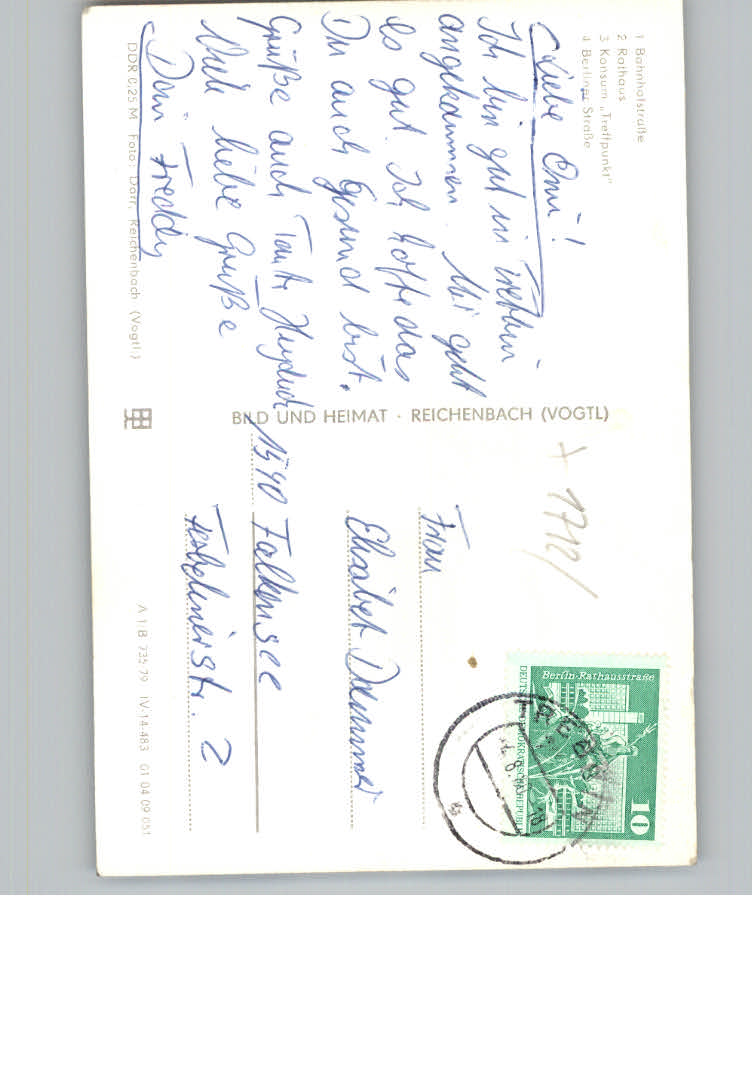 1 Bahnhofstraße
2 Rathaus
3 Konsum „Treffpunkt"
4 Berliner Straße
Liebe Omi!
Ich bin gut in Trebbin
angekommen. Mir geht
es gut. Ich hoffe das
Du auch Gesund bist.
Grüße auch Tante
Viele liebe Grüße
Dein Freddy
DDR 0,25 M Foto: Darr, Reichenbach (Vogtl)
BILD UND HEIMAT · REICHENBACH (VOGTL)
+ 1712/
Frau
Elisabet
1540 Falkensee
2
A 1/B 735/79 IV-14-483 01 04 09 051
Berlin-Rathausstraße
DEUTSCHE DEMOKRATISCHE REPUBLIK
10
TREBBIN